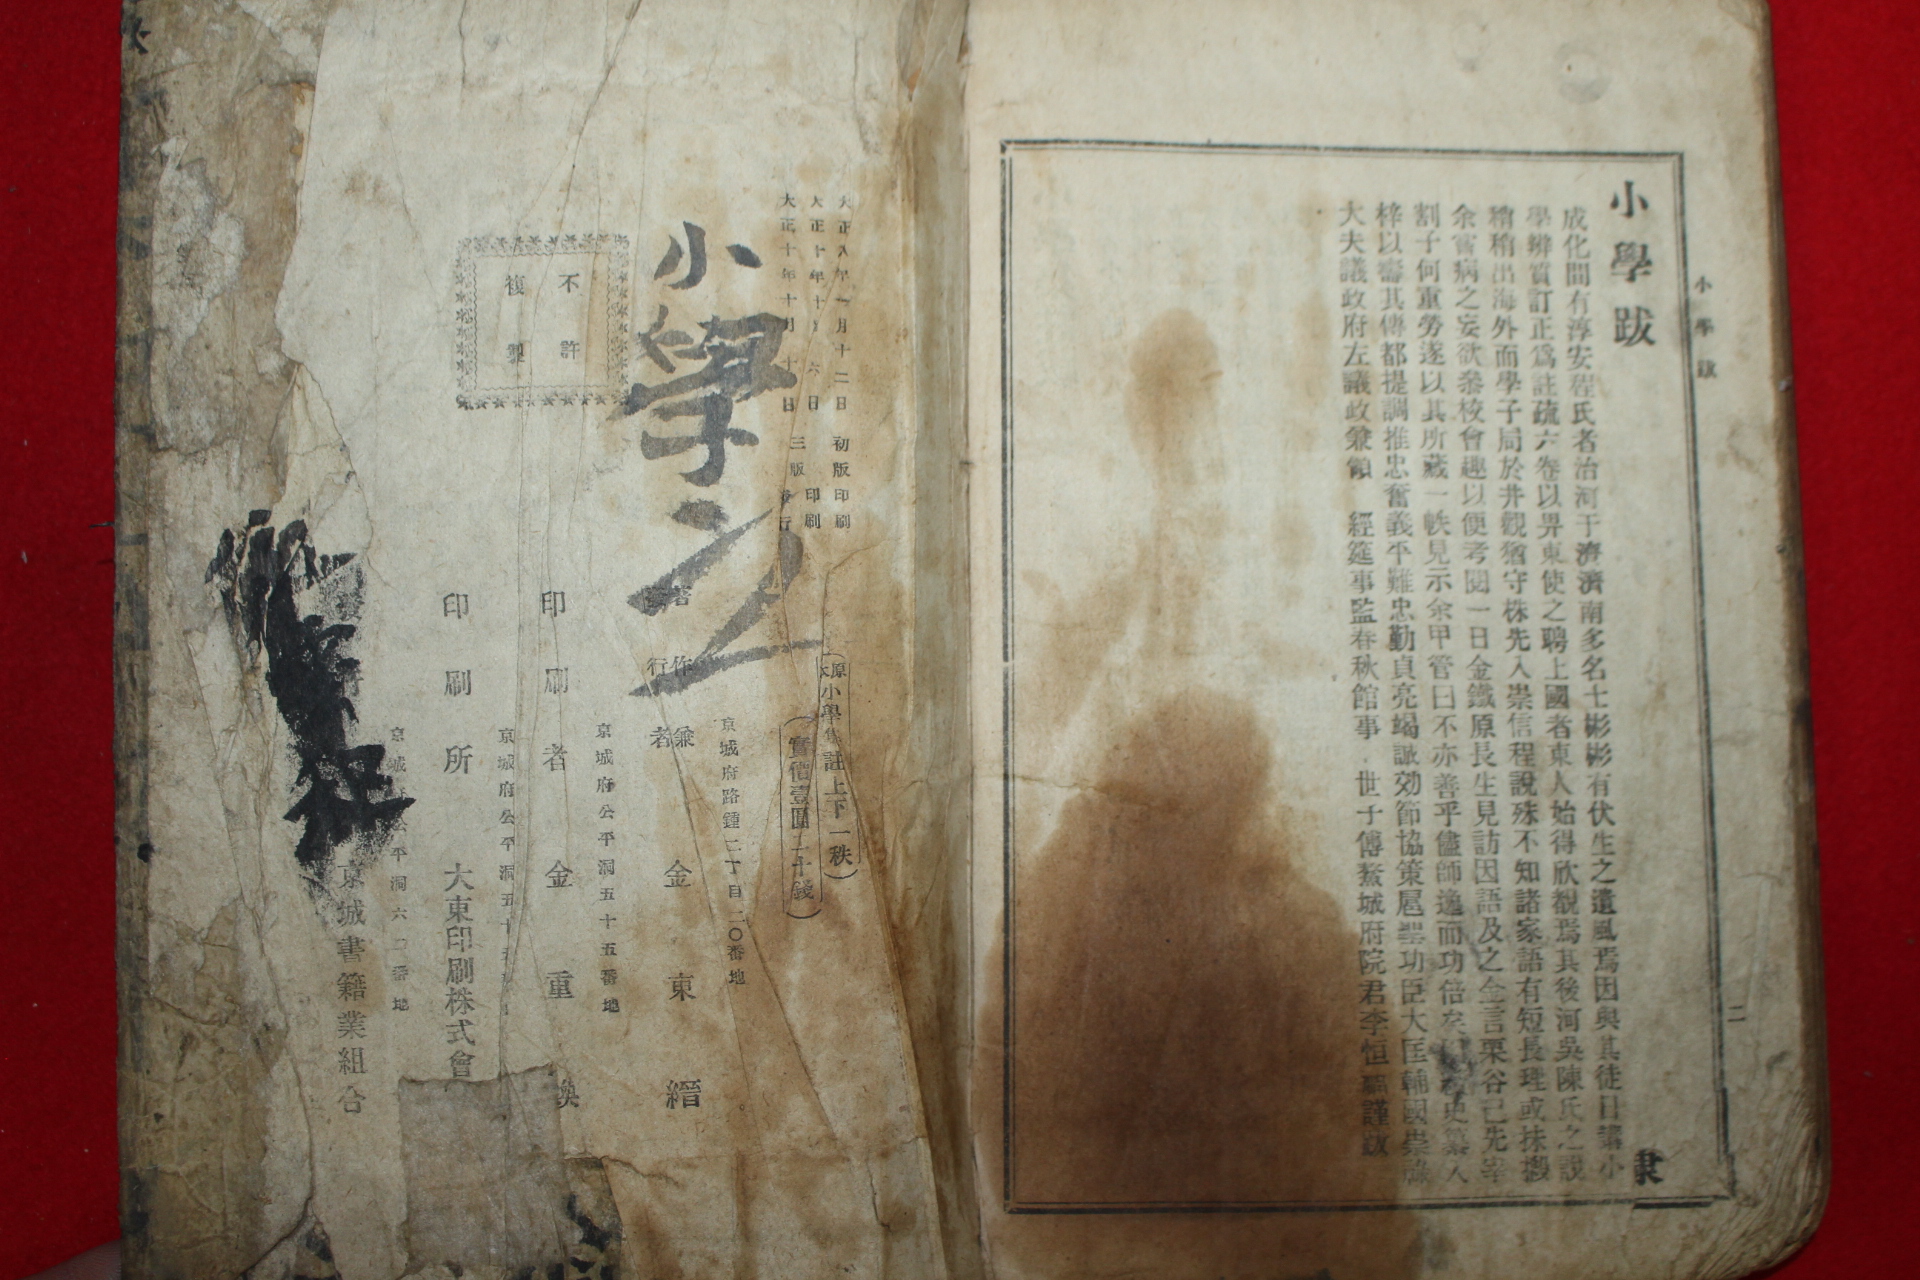 小學跋
成化間有淳安程氏者治河于濟濟南多名士彬彬有伏生之遺風焉因與其徒日講小
學辨質訂正爲註疏六卷以畀東使之聘上國者東人始得欣覩焉其後河吳陳氏之說
稍稍出海外而學子局於井觀猶守株先入崇信程說殊不知諸家語有短長理或抹摋
余嘗病之妄欲叅校會趣以便考閱一日金鐵原長生見訪因語及之金言栗谷已先
割子何重勞遂以其所藏一帙見示余甲管曰不亦善乎儘師逸而功倍矣
梓以壽其傳都提調推忠奮義平難忠勤貞亮竭誠効節協策扈聖功臣大匡輔國崇祿
大夫議政府左議政兼領 經筵事監春秋館事 世子傅鰲城府院君李恒福謹跋
小學跋
二
大正八年一月十二日 初版印刷
大正十年十 六日 印刷
大正十年十月 十日 三版發行
原本小學集註上下一秩
實價壹圓二十錢
小學
不許
複製
京城府路鍾二丁目二〇番地
著作兼
行者 金東縉
京城府公平洞五十五番地
印刷者 金重煥
京城府公平洞五十五
印刷所 大東印刷株式會
京城 公平洞六 番地
京城書籍業組合